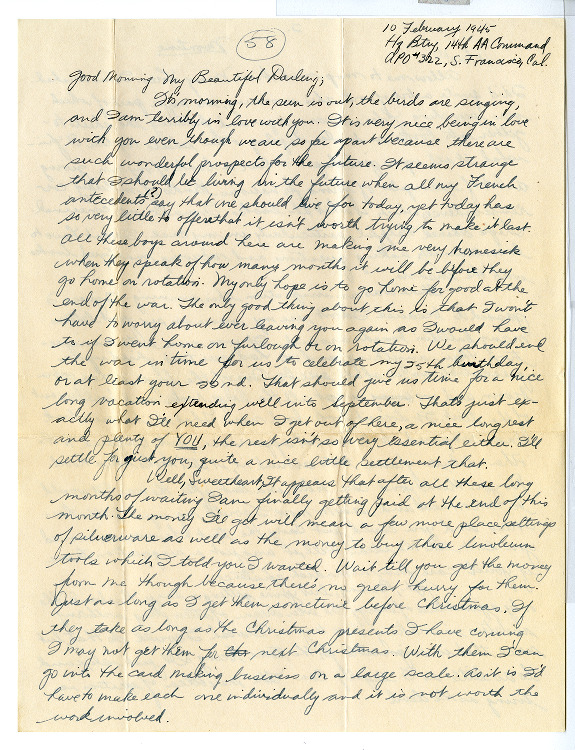 58
10 February 1945
Hq Btry, 14th AA Command
APO #322, S. Francisco, Cal.
Good Morning My Beautiful Darling,
It's morning, the sun is out, the birds are singing,
and I am terribly in love with you. It is very nice being in love
with you even though we are so far apart because there are
such wonderful prospects for the future. It seems strange
that I should be living in the future when all my French
antecedents(?) say that one should live for today, yet today has
so very little to offer that it isn't worth trying to make it last.
All these boys around here are making me very homesick
when they speak of how many months it will be before they
go home on rotation. My only hope is to go home for good at the
end of the war. The only good thing about this is that I won't
have to worry about ever leaving you again as I would have
to if I went home on furlough or on rotation. We should end
the war in time for us to celebrate my 25th birthday,
or at least your 22nd. That should give us time for a nice
long vacation extending well into September. That's just ex-
actly what I'll need when I get out of here, a nice long rest
and plenty of YOU, the rest isn't so very essential either. I'll
settle for just you, quite a nice little settlement that.
Well, Sweetheart, It appears that after all these long
months of waiting I am finally getting paid at the end of this
month. The money I've got will mean a few more place settings
of silverware as well as the money to buy those linoleum
tools which I told you I wanted. Wait till you get the money
from me though because there's no great hurry for them.
Just as long as I get them sometime before Christmas. If
they take as long as the Christmas presents I have coming
I may not get them for next Christmas. With them I can
go into the card making business on a large scale. As it is I'd
have to make each one individually and it is not worth the
work involved.